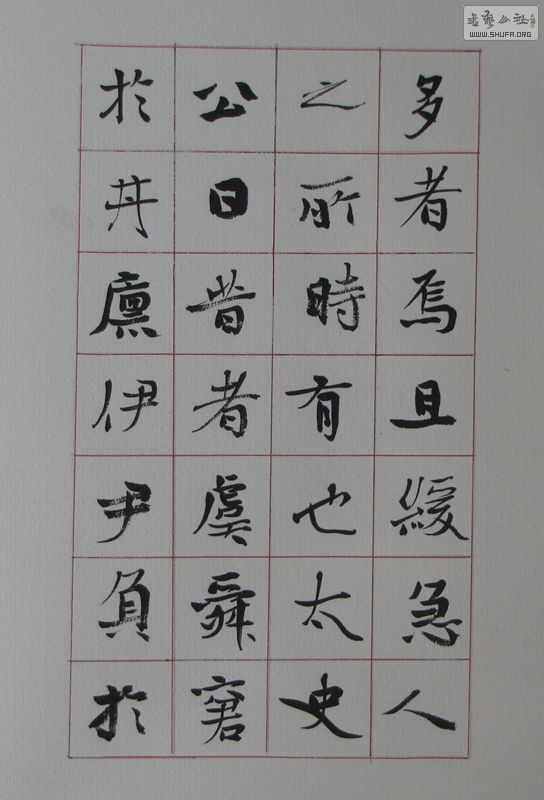 多者焉且緩急人
之所時有也太史
公曰昔者虞舜窘
於井廩伊尹負於
WWW.SHUFA.ORG